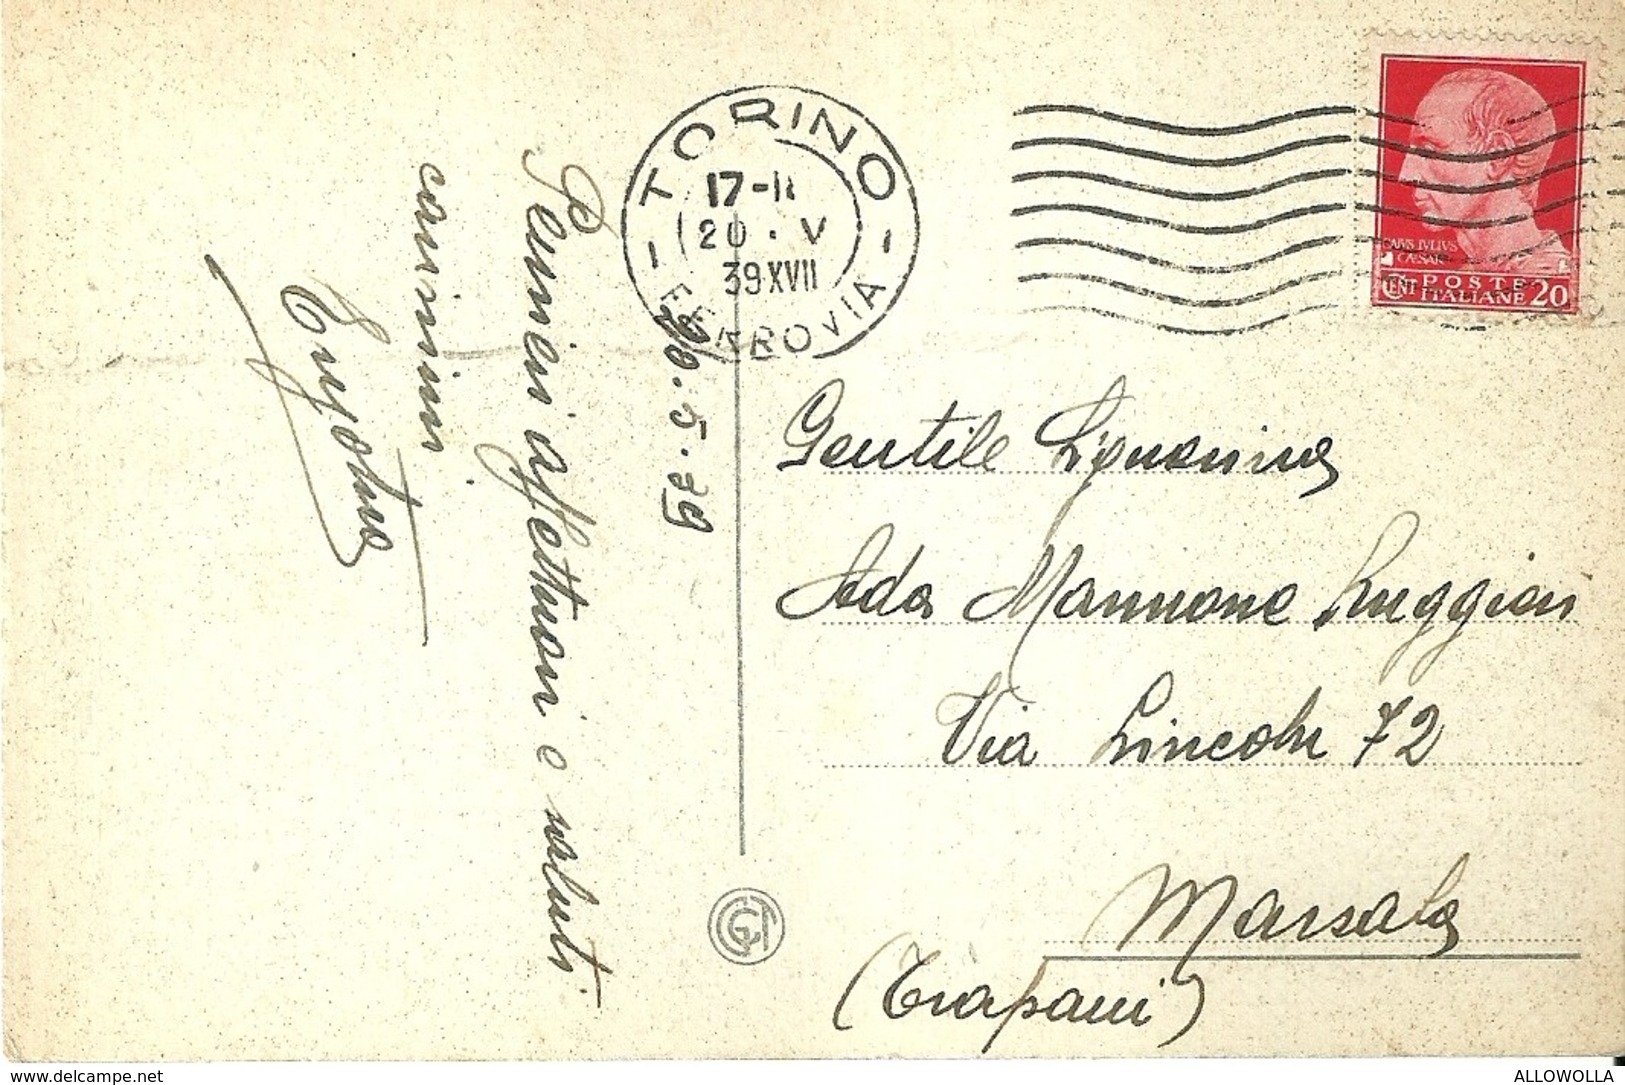 TORINO
17-18
20 · V
39 XVII
FERROVIA
CAIVS IVLIVS
CAESAR
CENT POSTE
ITALIANE 20
20.5.39
Pensieri affettuosi e saluti
carissimi
Gentile Signorina
Ada Mannone Ruggieri
Via Lincoln 72
Marsala
(Trapani)
www.delcampe.net
ALLOWOLLA